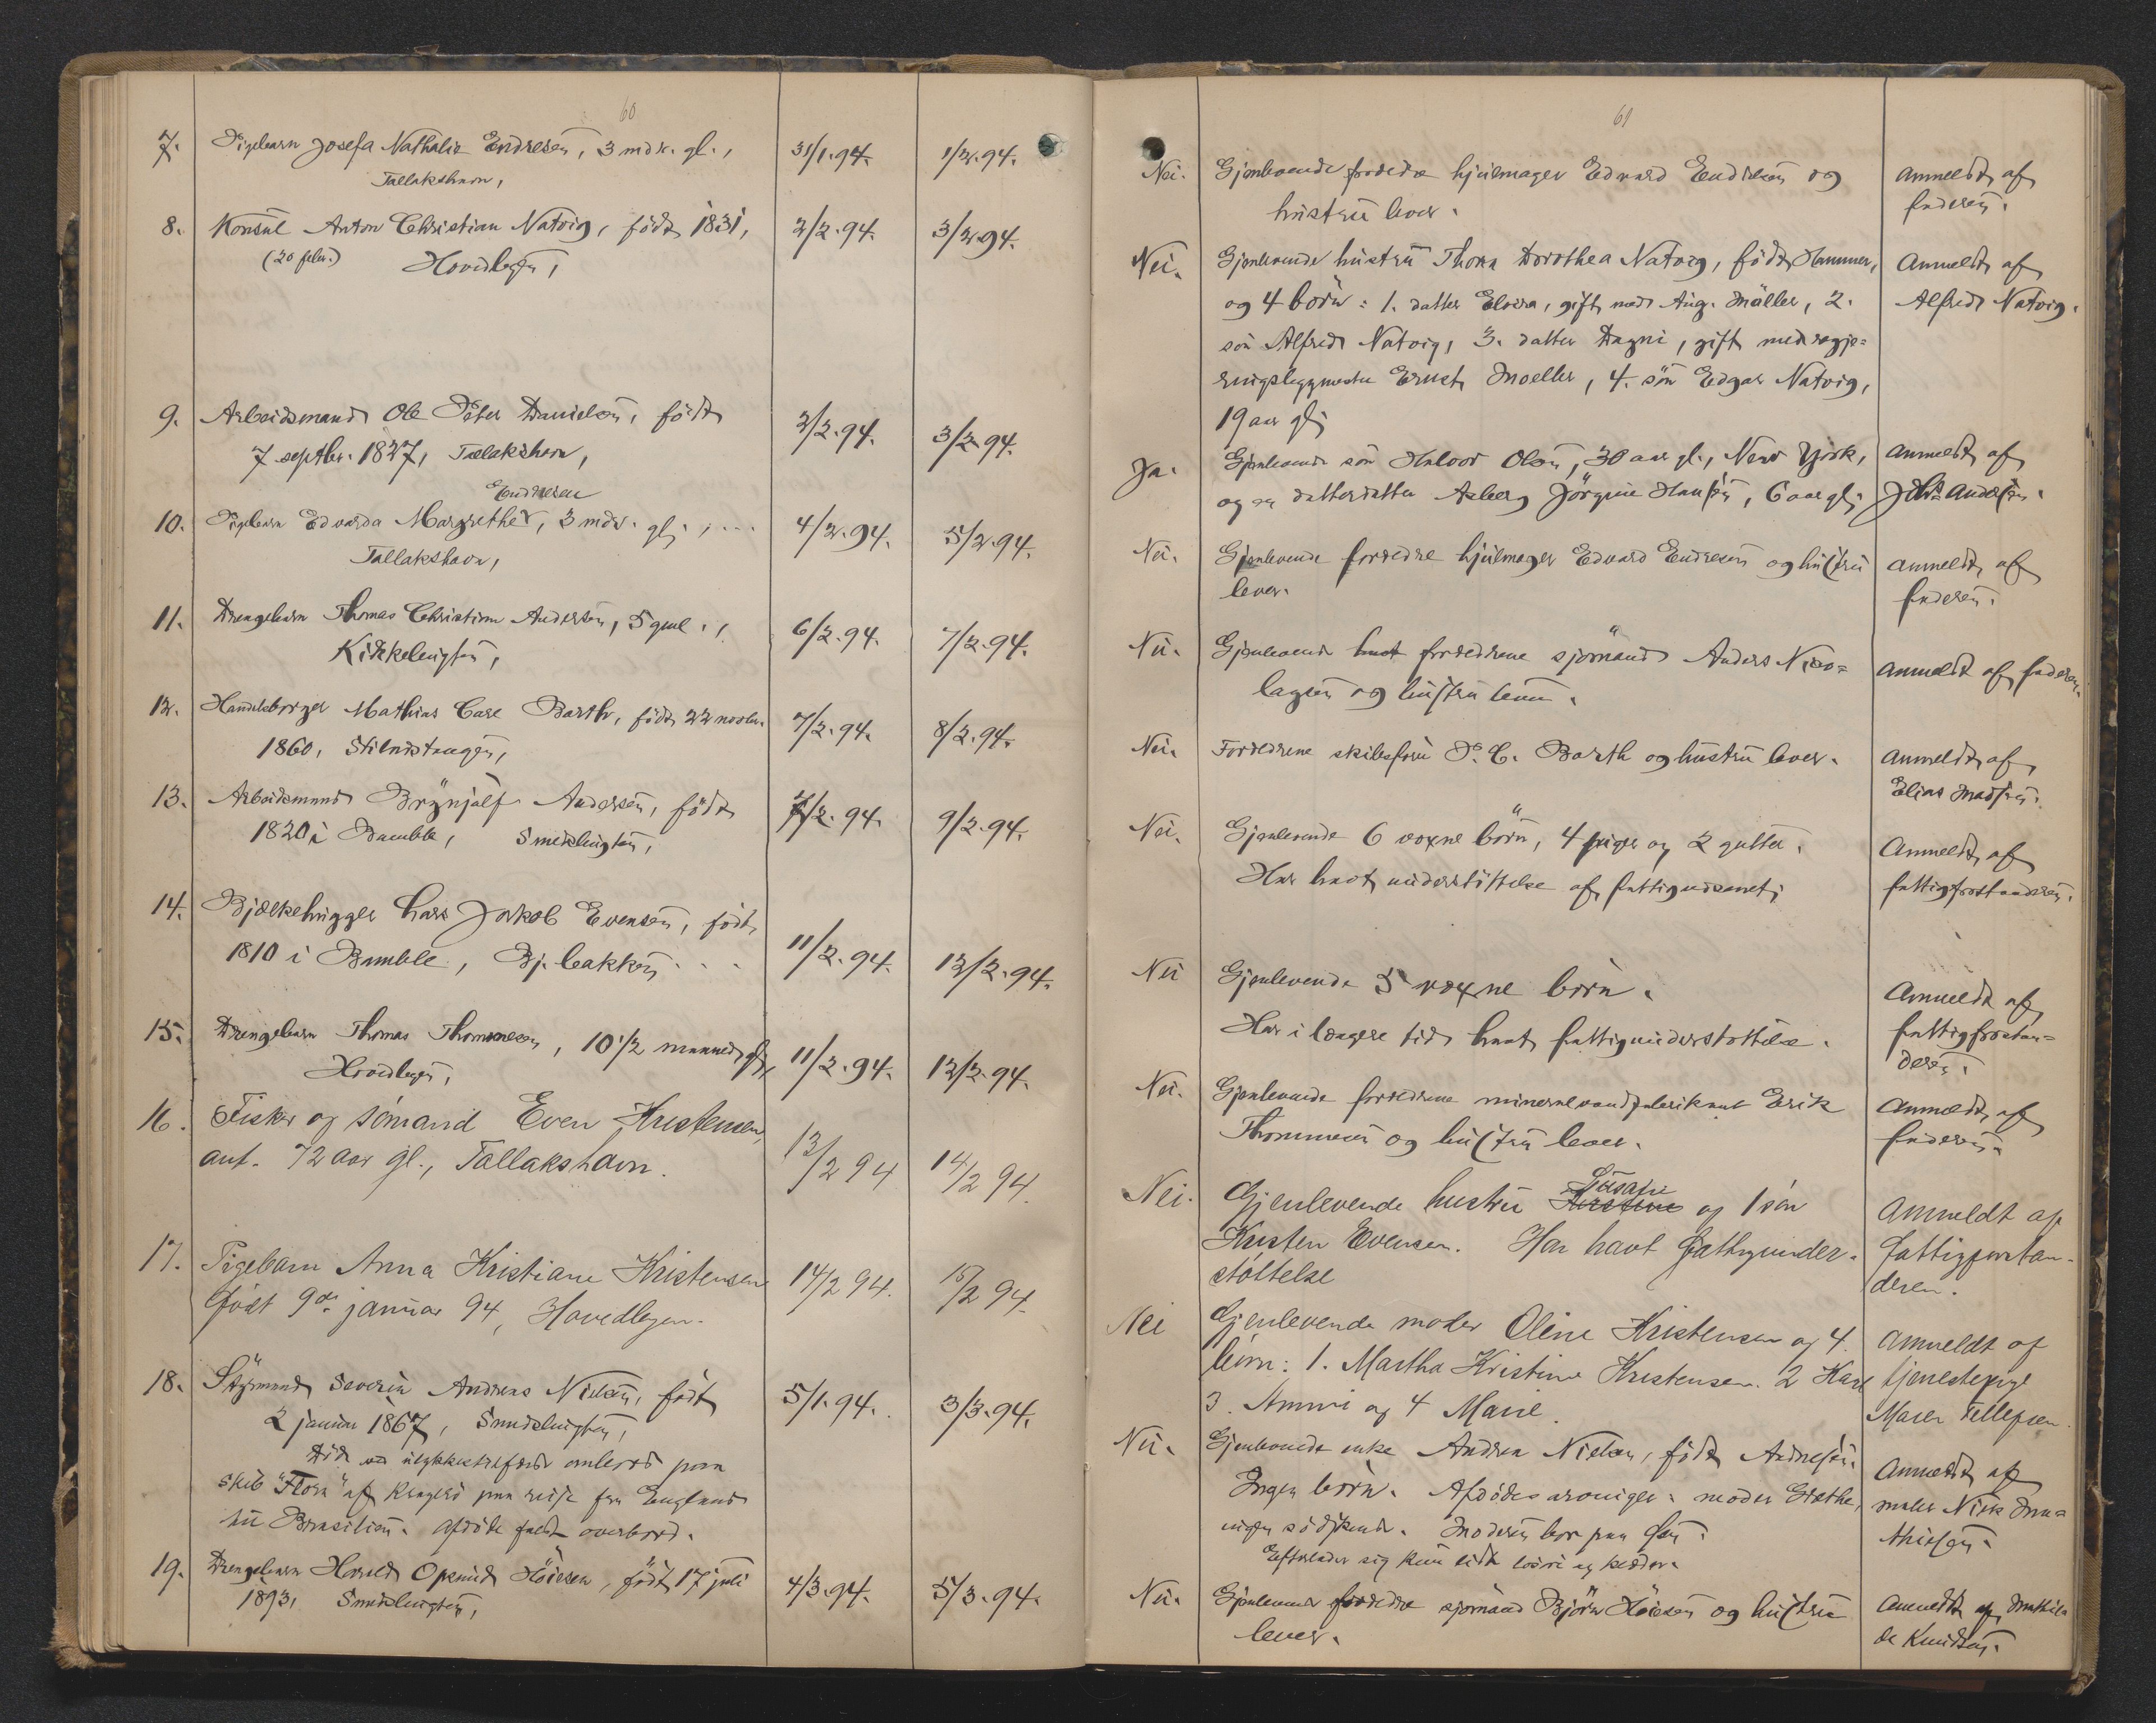 60
7. Pigebarn Josefa Nathalie Endresen, 3 mdr. gl.,
Tallakshavn,
31/1.94. 1/2.94.
8. Konsul Anton Christian Natvig, født 1831,
(20 febr.) Hovedbyen,
2/2.94. 3/2.94.
9. Arbeidsmand Ole Peter Danielsen, født
7 septbr. 1827, Tallakshavn,
2/2.94. 3/2.94.
Endresen
10. Pigebarn Edvarda Margrethe, 3 mdr. gl.,
Tallakshavn,
4/2.94. 5/2.94.
11. Drengebarn Thomas Christian Andersen, 5 gml.,
Kirkebugten,
6/2.94. 7/2.94.
12. Handelsborger Mathias Carl Barth, født 22 novbr.
1860, Stilnestangen,
7/2.94. 8/2.94.
13. Arbeidsmand Brynjulf Andersen, født
1820 i Bamble, Smedsbugten,
7/2.94. 9/2.94.
14. Bjælkehugger Lars Jakob Evensen, født
1810 i Bamble, Bj. bakken
11/2.94. 12/2.94.
15. Drengebarn Thomas Thommesen, 10 1/2 maaned gl,
Hovedbyen,
11/2.94. 12/2.94.
16. Fisker og sømand Even Kristensen,
ant. 72 aar gl., Tallakshavn.
13/2 94 14/2 94.
17. Pigebarn Anna Kristiane Kristensen
født 9de januar 94, Hovedbyen.
14/2 94. 15/2 94.
18. Styrmand Severin Andreas Nielsen, født
2 januar 1867, Smedsbugten,
Død ved ulykkestilfælde ombord paa
skib "Flora" af Kragerø paa reise fra England
til Brasilien. Afdøde faldt overbord.
5/1.94. 3/3.94.
19. Drengebarn Harald Opsund Høiesen, født 17 juli
1893, Smedsbugten,
4/3.94. 5/3.94.
61
Nei. Gjenlevende forældre hjulmager Edvard Endresen og
hustru lever.
Anmeldt af
faderen.
Nei. Gjenlevende hustru Thora Dorothea Natvig, født Hammer,
og 4 børn: 1. datter Elvira, gift med Aug. Møller, 2.
søn Alfred Natvig, 3. datter Dagni, gift med regje-
ringsbygmester Ernst Moeller, 4. søn Edgar Natvig,
19 aar gl.
Anmeldt af
Alfred Natvig.
Ja. Gjenlevende søn Halvor Olsen, 30 aar gl., New York,
og en datterdatter Asberg Jørgine Hansen, 6 aar gl.
Anmeldt af
Johs Andersen.
Nei. Gjenlevende forældre hjulmager Edvard Endresen og hustru
lever.
Anmeldt af
faderen.
Nei. Gjenlevende forældrene sjømand Anders Nico-
laysen og hustru lever.
Anmeldt af faderen.
Nei. Forældrene skibsfører P. C. Barth og hustru lever.
Anmeldt af
Elias Madsen.
Nei. Gjenlevende 6 voxne børn, 4 piger og 2 gutter.
Har havt understøttelse af fattigvæsenet.
Anmeldt af
fattigforstanderen.
Nei Gjenlevende 5 voxne børn.
Har i længere tid havt fattigunderstøttelse.
Anmeldt af
fattigforstan-
deren.
Nei. Gjenlevende forældrene mineralvandfabrikant Erik
Thommesen og hustru lever.
Anmeldt af
faderen.
Susanne
Nei. Gjenlevende hustru Kirstine og 1 søn
Kristen Evensen. Har havt fattigunder-
støttelse
Anmeldt af
fattigforstan-
deren.
Nei Gjenlevende moder Oline Kristensen og 4
børn: 1. Martha Kristine Kristensen. 2 Karl
3. Ammi og 4 Marie.
Anmeldt af
tjenestepige
Maren Tellefsen.
Nei. Gjenlevende enke Andrea Nielsen, født Andresen.
Ingen børn. Afdødes arvinger: moder Grethe,
ingen sødskende. Moderen bor paa Øen.
Efterlader sig kun lidt løsøre og klæder.
Anmeldt af
maler Niels Ma-
thiesen.
Nei. Gjenlevende forældre sjømand Bjørn Høiesen og hustru
lever.
Anmeldt af Mathil
de Knudsen.